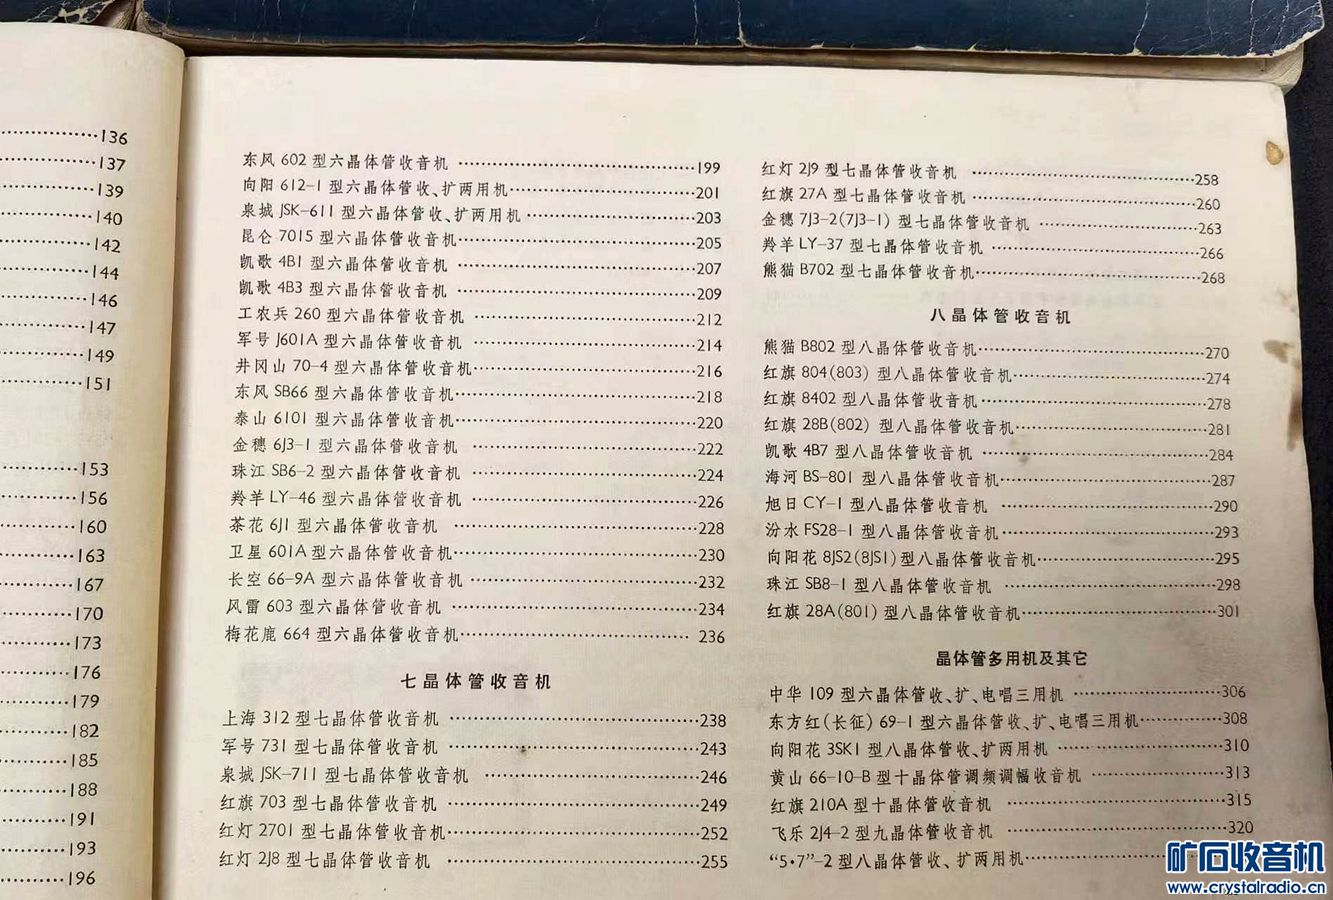 136
137
139
140
142
144
146
147
149
151
153
156
160
163
167
170
173
176
179
182
185
188
191
193
196
东风 602 型六晶体管收音机 199
向阳 612-1 型六晶体管收、扩两用机 201
泉城 JSK-611 型六晶体管收、扩两用机 203
昆仑 7015 型六晶体管收音机 205
凯歌 4B1 型六晶体管收音机 207
凯歌 4B3 型六晶体管收音机 209
工农兵 260 型六晶体管收音机 212
军号 J601A 型六晶体管收音机 214
井冈山 70-4 型六晶体管收音机 216
东风 SB66 型六晶体管收音机 218
泰山 6101 型六晶体管收音机 220
金穗 6J3-1 型六晶体管收音机 222
珠江 SB6-2 型六晶体管收音机 224
羚羊 LY-46 型六晶体管收音机 226
茶花 6J1 型六晶体管收音机 228
卫星 601A 型六晶体管收音机 230
长空 66-9A 型六晶体管收音机 232
风雷 603 型六晶体管收音机 234
梅花鹿 664 型六晶体管收音机 236
七晶体管收音机
上海 312 型七晶体管收音机 238
军号 731 型七晶体管收音机 243
泉城 JSK-711 型七晶体管收音机 246
红旗 703 型七晶体管收音机 249
红灯 2701 型七晶体管收音机 252
红灯 2J8 型七晶体管收音机 255
红灯 2J9 型七晶体管收音机 258
红旗 27A 型七晶体管收音机 260
金穗 7J3-2(7J3-1) 型七晶体管收音机 263
羚羊 LY-37 型七晶体管收音机 266
熊猫 B702 型七晶体管收音机 268
八晶体管收音机
熊猫 B802 型八晶体管收音机 270
红旗 804(803) 型八晶体管收音机 274
红旗 8402 型八晶体管收音机 278
红旗 28B(802) 型八晶体管收音机 281
凯歌 4B7 型八晶体管收音机 284
海河 BS-801 型八晶体管收音机 287
旭日 CY-1 型八晶体管收音机 290
汾水 FS28-1 型八晶体管收音机 293
向阳花 8JS2(8JS1) 型八晶体管收音机 295
珠江 SB8-1 型八晶体管收音机 298
红旗 28A(801) 型八晶体管收音机 301
晶体管多用机及其它
中华 109 型六晶体管收、扩、电唱三用机 306
东方红(长征) 69-1 型六晶体管收、扩、电唱三用机 308
向阳花 3SK1 型八晶体管收、扩两用机 310
黄山 66-10-B 型十晶体管调频调幅收音机 313
红旗 210A 型十晶体管收音机 315
飞乐 2J4-2 型九晶体管收音机 320
“5·7”-2 型八晶体管收、扩两用机
矿石收音机
www.crystalradio.cn